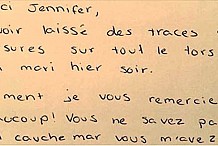 ci Jennifer,
oir laissé des traces
sures sur tout le tors
n mari hier soir.
ment je vous remercie
ucoup! Vous ne savez pa
cauchemar vous m'avez